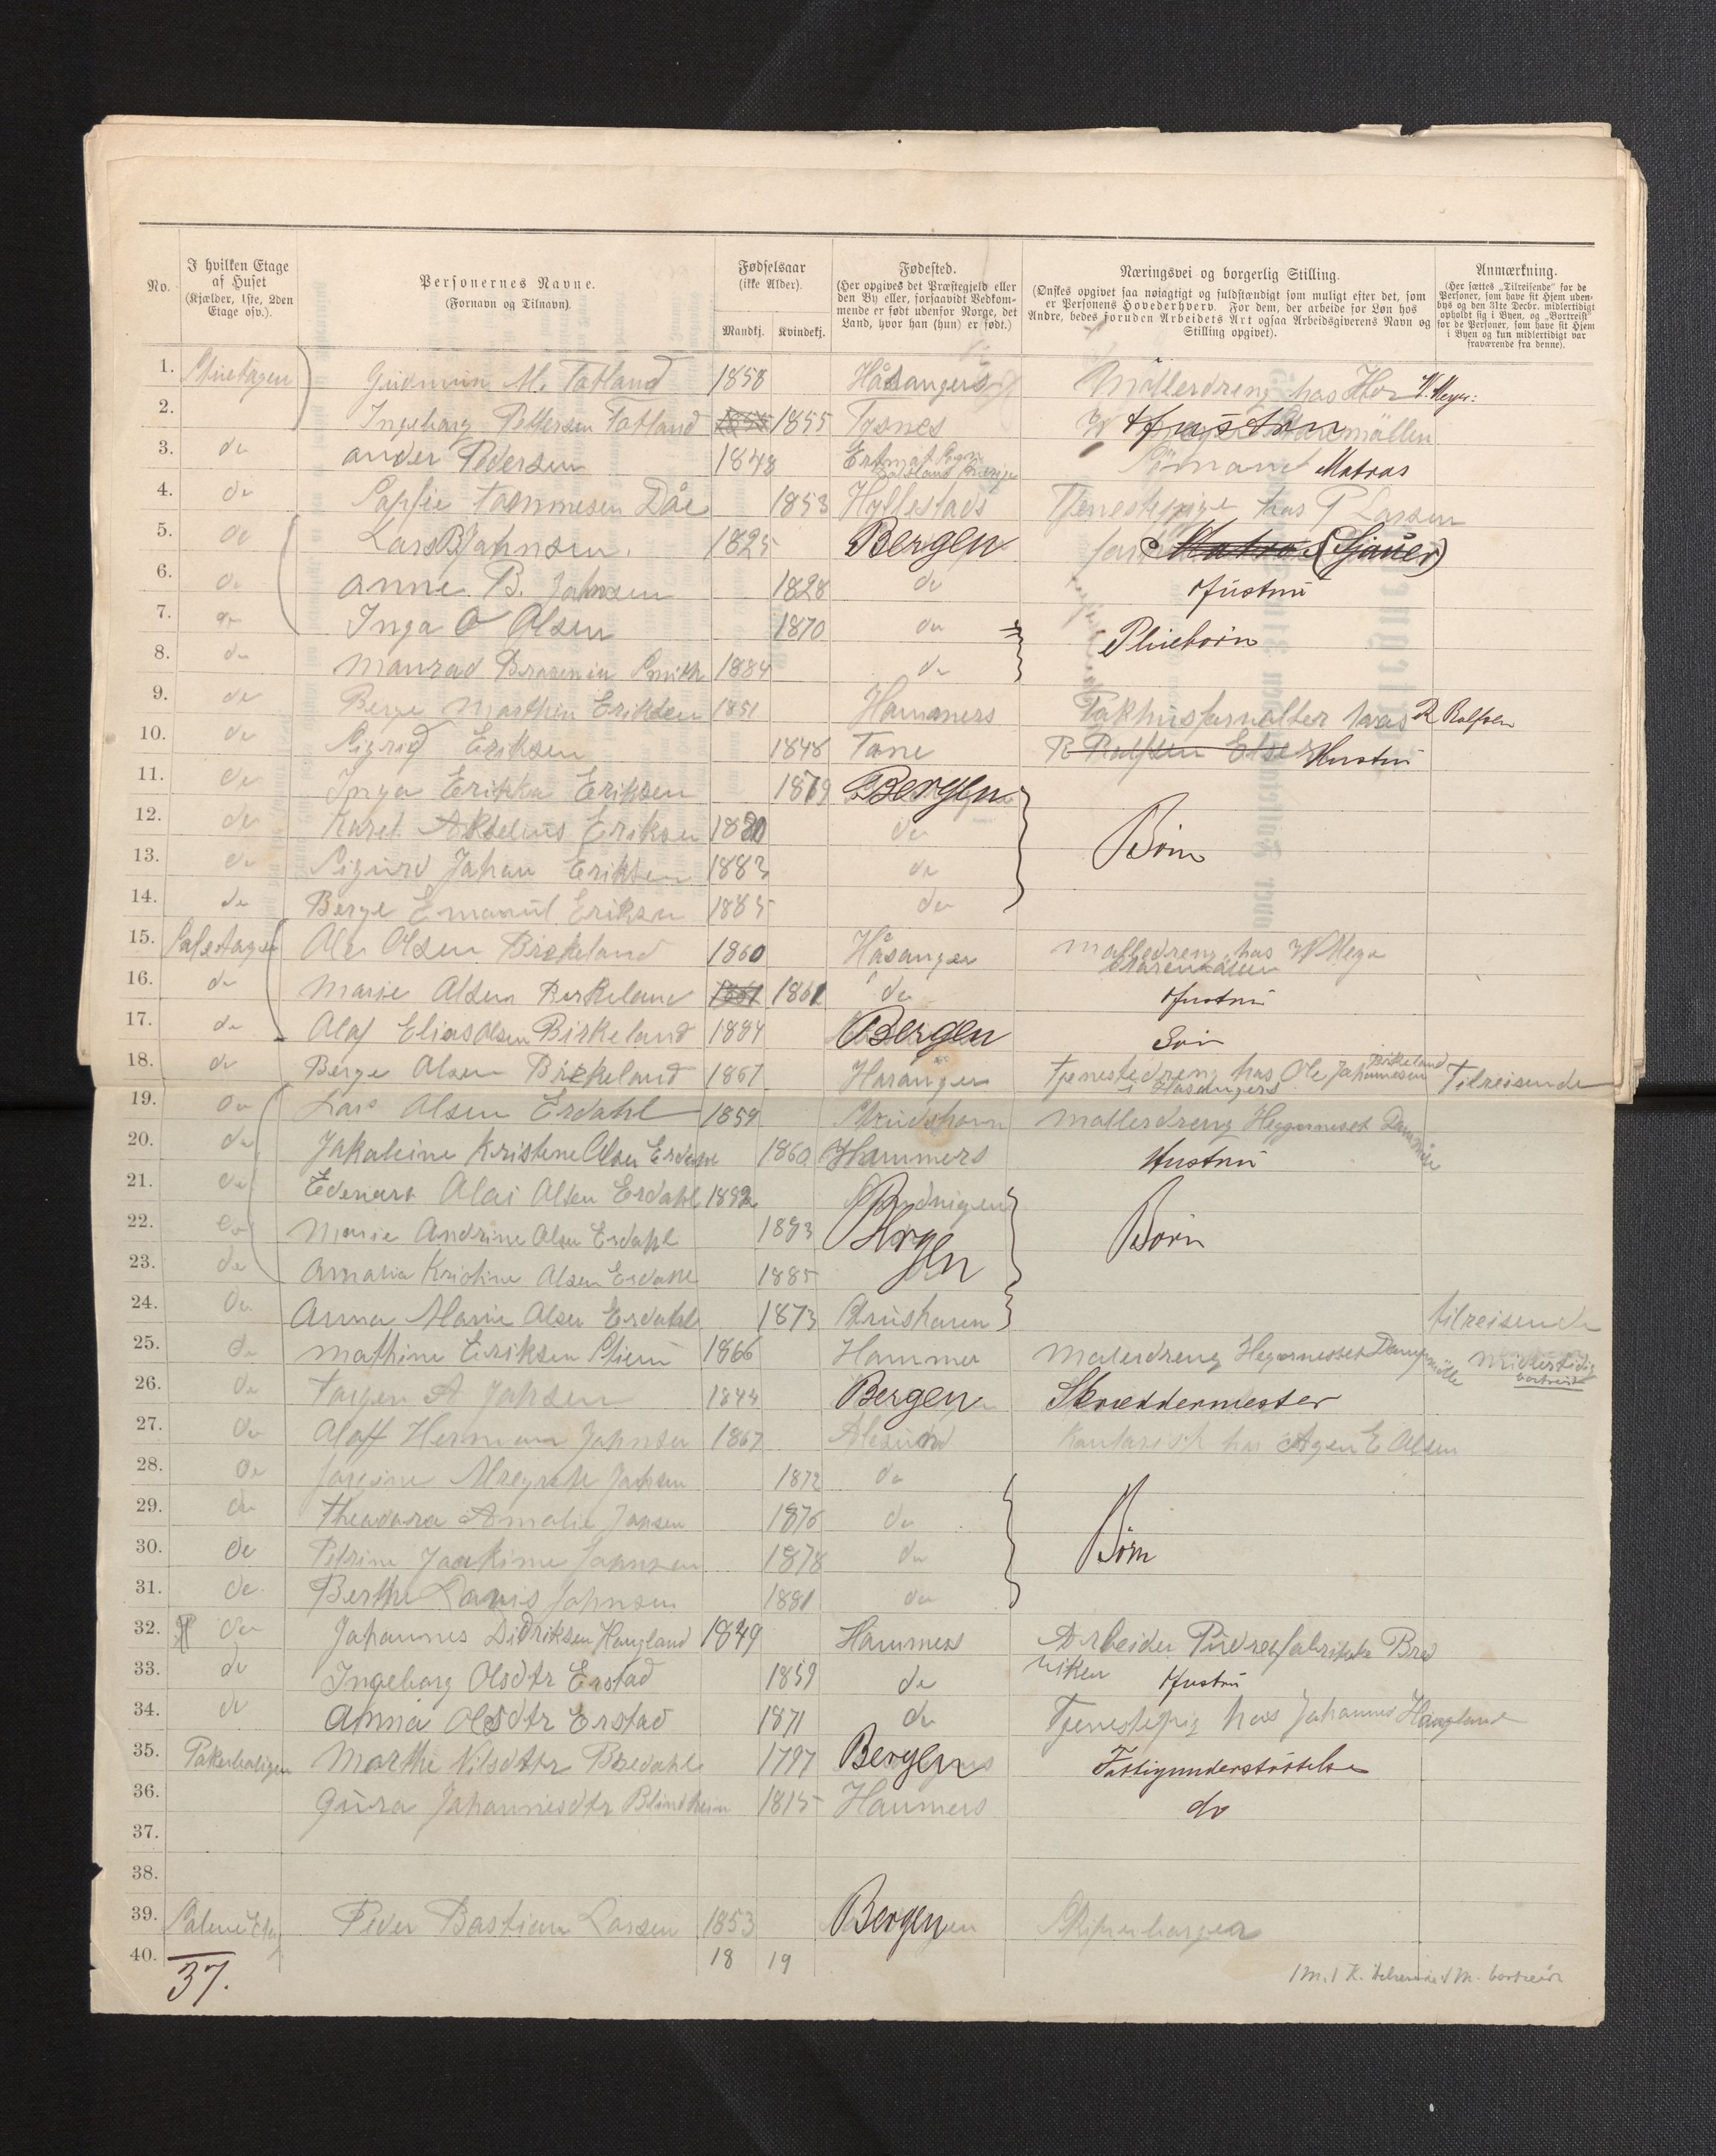 No.
I hvilken Etage
af Huset
(Kjælder, 1ste, 2den
Etage osv.).
Personernes Navne.
(Fornavn og Tilnavn).
Fødselsaar
(ikke Alder).
Mandkj. Kvindekj.
Fødested.
(Her opgives det Præstegjeld eller
den By eller, forsaavidt Vedkom-
mende er født udenfor Norge, det
Land, hvor han (hun) er født.)
Næringsvei og borgerlig Stilling.
(Ønskes opgivet saa nøiagtigt og fuldstændigt som muligt efter det, som
er Personens Hovederhverv. For dem, der arbeide for Løn hos
Andre, bedes foruden Arbeidets Art ogsaa Arbeidsgiverens Navn og
Stilling opgivet).
Anmærkning.
(Her sættes „Tilreisende" for de
Personer, som have sit Hjem uden-
bys og den 31te Decbr. midlertidigt
opholdt sig i Byen, og „Bortreist"
for de Personer, som have sit Hjem
i Byen og kun midlertidigt var
fraværende fra denne).
1. Stuetagen M. Tatland 1858 Håsangers Møllerdreng has W. Meyer
2. Ingeborg Pettersen Tatland 1855 Tysnes Hustru
3. do ander Pedersen 1848 Sømand Matros
4. do Tormesen Dåe 1853 Hyllestads Tjenestepige has P Larsen
5. do Lars B Johnsen 1825 Bergen (Sjauer)
6. do anne B. Johnsen 1828 do Hustru
7. do Inga O Olsen 1870 do Pleiebørn
8. do Smith 1884 do
9. do Berge Marthin Eriksen 1851 Hammers Pakhusforvalter has R Rolfsen
10. do Sigrid Eriksen 1848 Tane R Rolfsen Hustru
11. do Inga Erikka Eriksen 1879 Bergen
12. do Karel Akselius Eriksen 1880 do Børn
13. do Sigurd Johan Eriksen 1883 do
14. do Berge Emanuel Eriksen 1885 do
15. Salsetagen Ole Olsen Birkeland 1860 Håsanger Mølledreng has W Meyer
16. do Marie Olsen Berkeland 1861 do Hustru
17. do Olaf Elias Olsen Birkeland 1884 Bergen Søn
18. do Berge Olsen Birkeland 1867 Hosanger Tjenestedreng has Ole Johannesen Birkeland Tilreisende
i Hosangers
19. do Lars Olsen Erdahl 1859 Møllerdreng Hegreneset Dammølle
20. do Jakobine Kristene Olsen Erdahl 1860 Hammers Hustru
21. do Edevart Olai Olsen Erdahl 1882
22. do Marie Andrine Olsen Erdahl 1883 Bergen Børn
23. do Amalia Kristine Olsen Erdahl 1885
24. do Anna Marie Olsen Erdahl 1873 tilreisende
25. do Mathine Eriksen 1866 Hammer Møllerdreng Hegrenesset Dampmølle midlertidig
bortreist
26. do Torger A Johsen 1844 Bergen Skræddermester
27. do Oloff Herman Johnsen 1867 Alesund Kontorist has Agen E Olsen
28. do Jorgine Johsen 1872 do
29. do Theodora Amalie Jonsen 1876 do
30. do Petrine Joakime Johnsen 1878 do Børn
31. do Berthe Lovis Johnsen 1881 do
32. do Johannes Didriksen Haugland 1849 Hammers Arbeider Pudretfabriken Bred
viken
33. do Ingeborg Olsdtr Erstad 1859 do Hustru
34. do Anna Olsdtr Erstad 1871 do Tjenestepig hos Johannes Haugland
35. Marthe Nilsdtr Bredahl 1797 Bergen Fattigunderstøttelse
36. Gura Johannesdtr Blindheim 1815 Hammers do
37.
38.
39. Peder Bastian Larsen 1853 Bergen Skipperborger
40. 18 19
37.
1 M. 1 K. tilreisende 1 M. bortreist